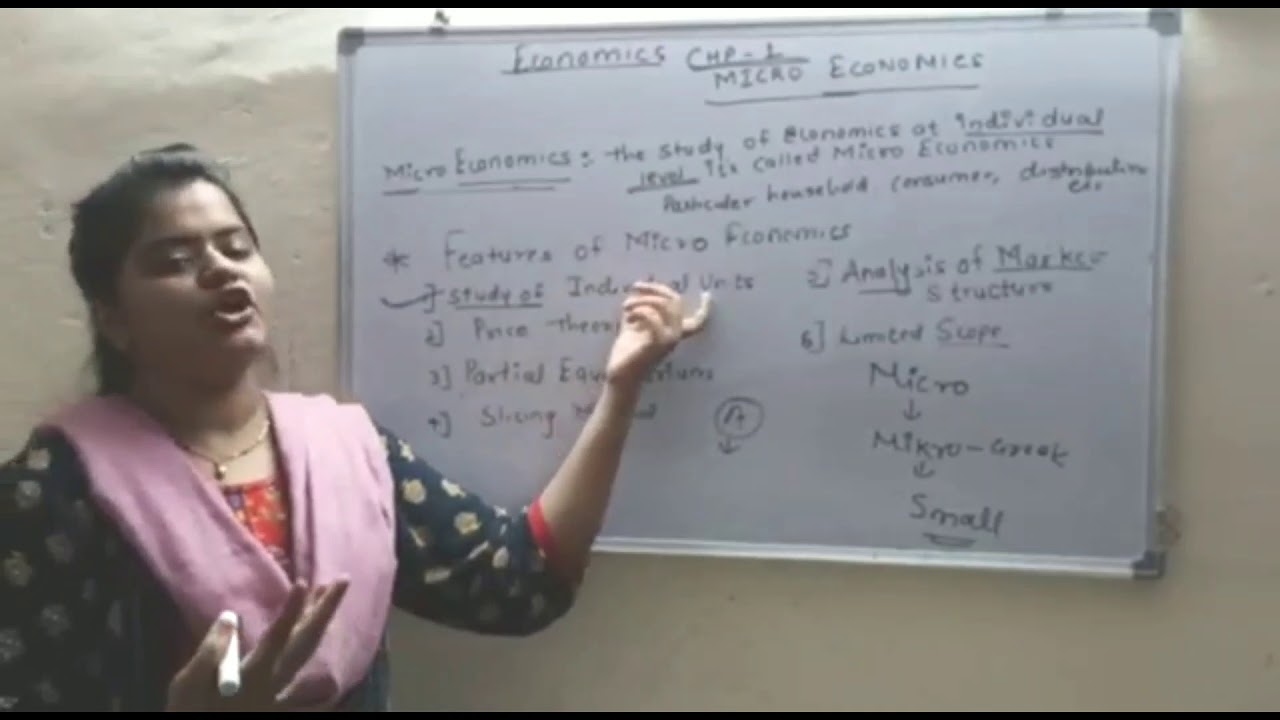 Economics CHP-1
MICRO ECONOMICS
Micro Economics: the study of Economics at Individual
level Its called Micro Economics
Particular household, consumer, distribution
etc.
* Features of Micro Economics
1] Study of Individual Units
2] Price Theory
3] Partial Equilibrium
4] Slicing
5] Analysis of Market
Structure
6] Limited Scope
Micro
↓
Mikro-Greek
↓
Small
A
↓